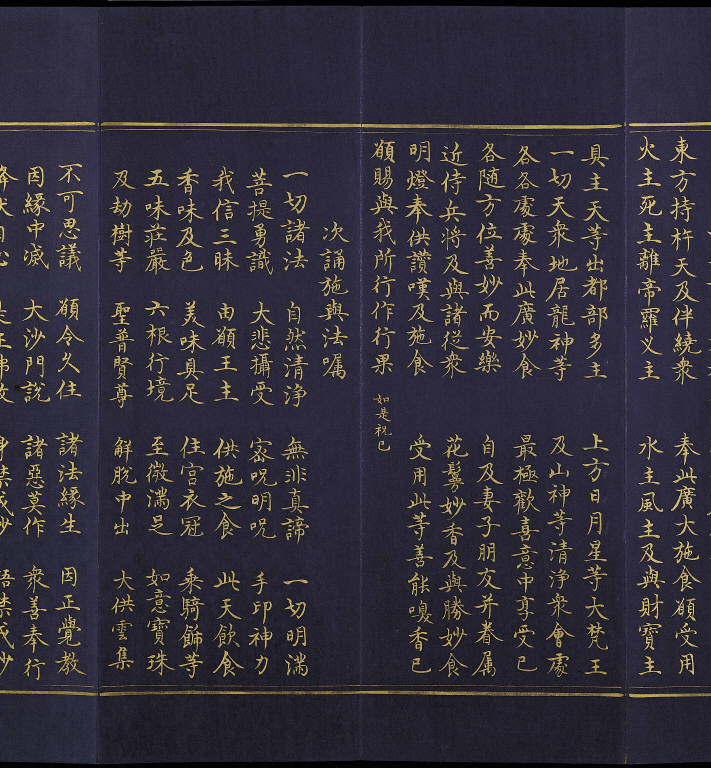 東方持杵天及伴繞衆 奉此廣大施食願受用
火主死主離帝羅义主 水主風主及與財寶主
具主天等出都部多主 上方日月星等大梵王
一切天衆地居龍神等 及山神等清淨衆會處
各各處處奉此廣妙食 最極歡喜意中享受已
各随方位善妙而安樂 自及妻子朋友并眷属
近侍兵将及與諸從衆 花鬘妙香及與勝妙食
明燈奉供讚嘆及施食 受用此等善能嗅香已
願賜與我所行作行果 如是祝已
次誦施與法嘱
一切諸法 自然清淨 無非真諦 一切明満
菩提勇識 大悲攝受 密呪明呪 手印神力
我信三昧 由願王主 供施之食 此天飲食
香味及色 美味具足 住宫衣冠 乗騎飾等
五味莊嚴 六根行境 至微満足 如意寶珠
及劫樹等 聖普賢尊 解脫中出 大供雲集
不可思議 願令久住 諸法緣生 因正覺教
因緣中滅 大沙門説 諸惡莫作 衆善奉行